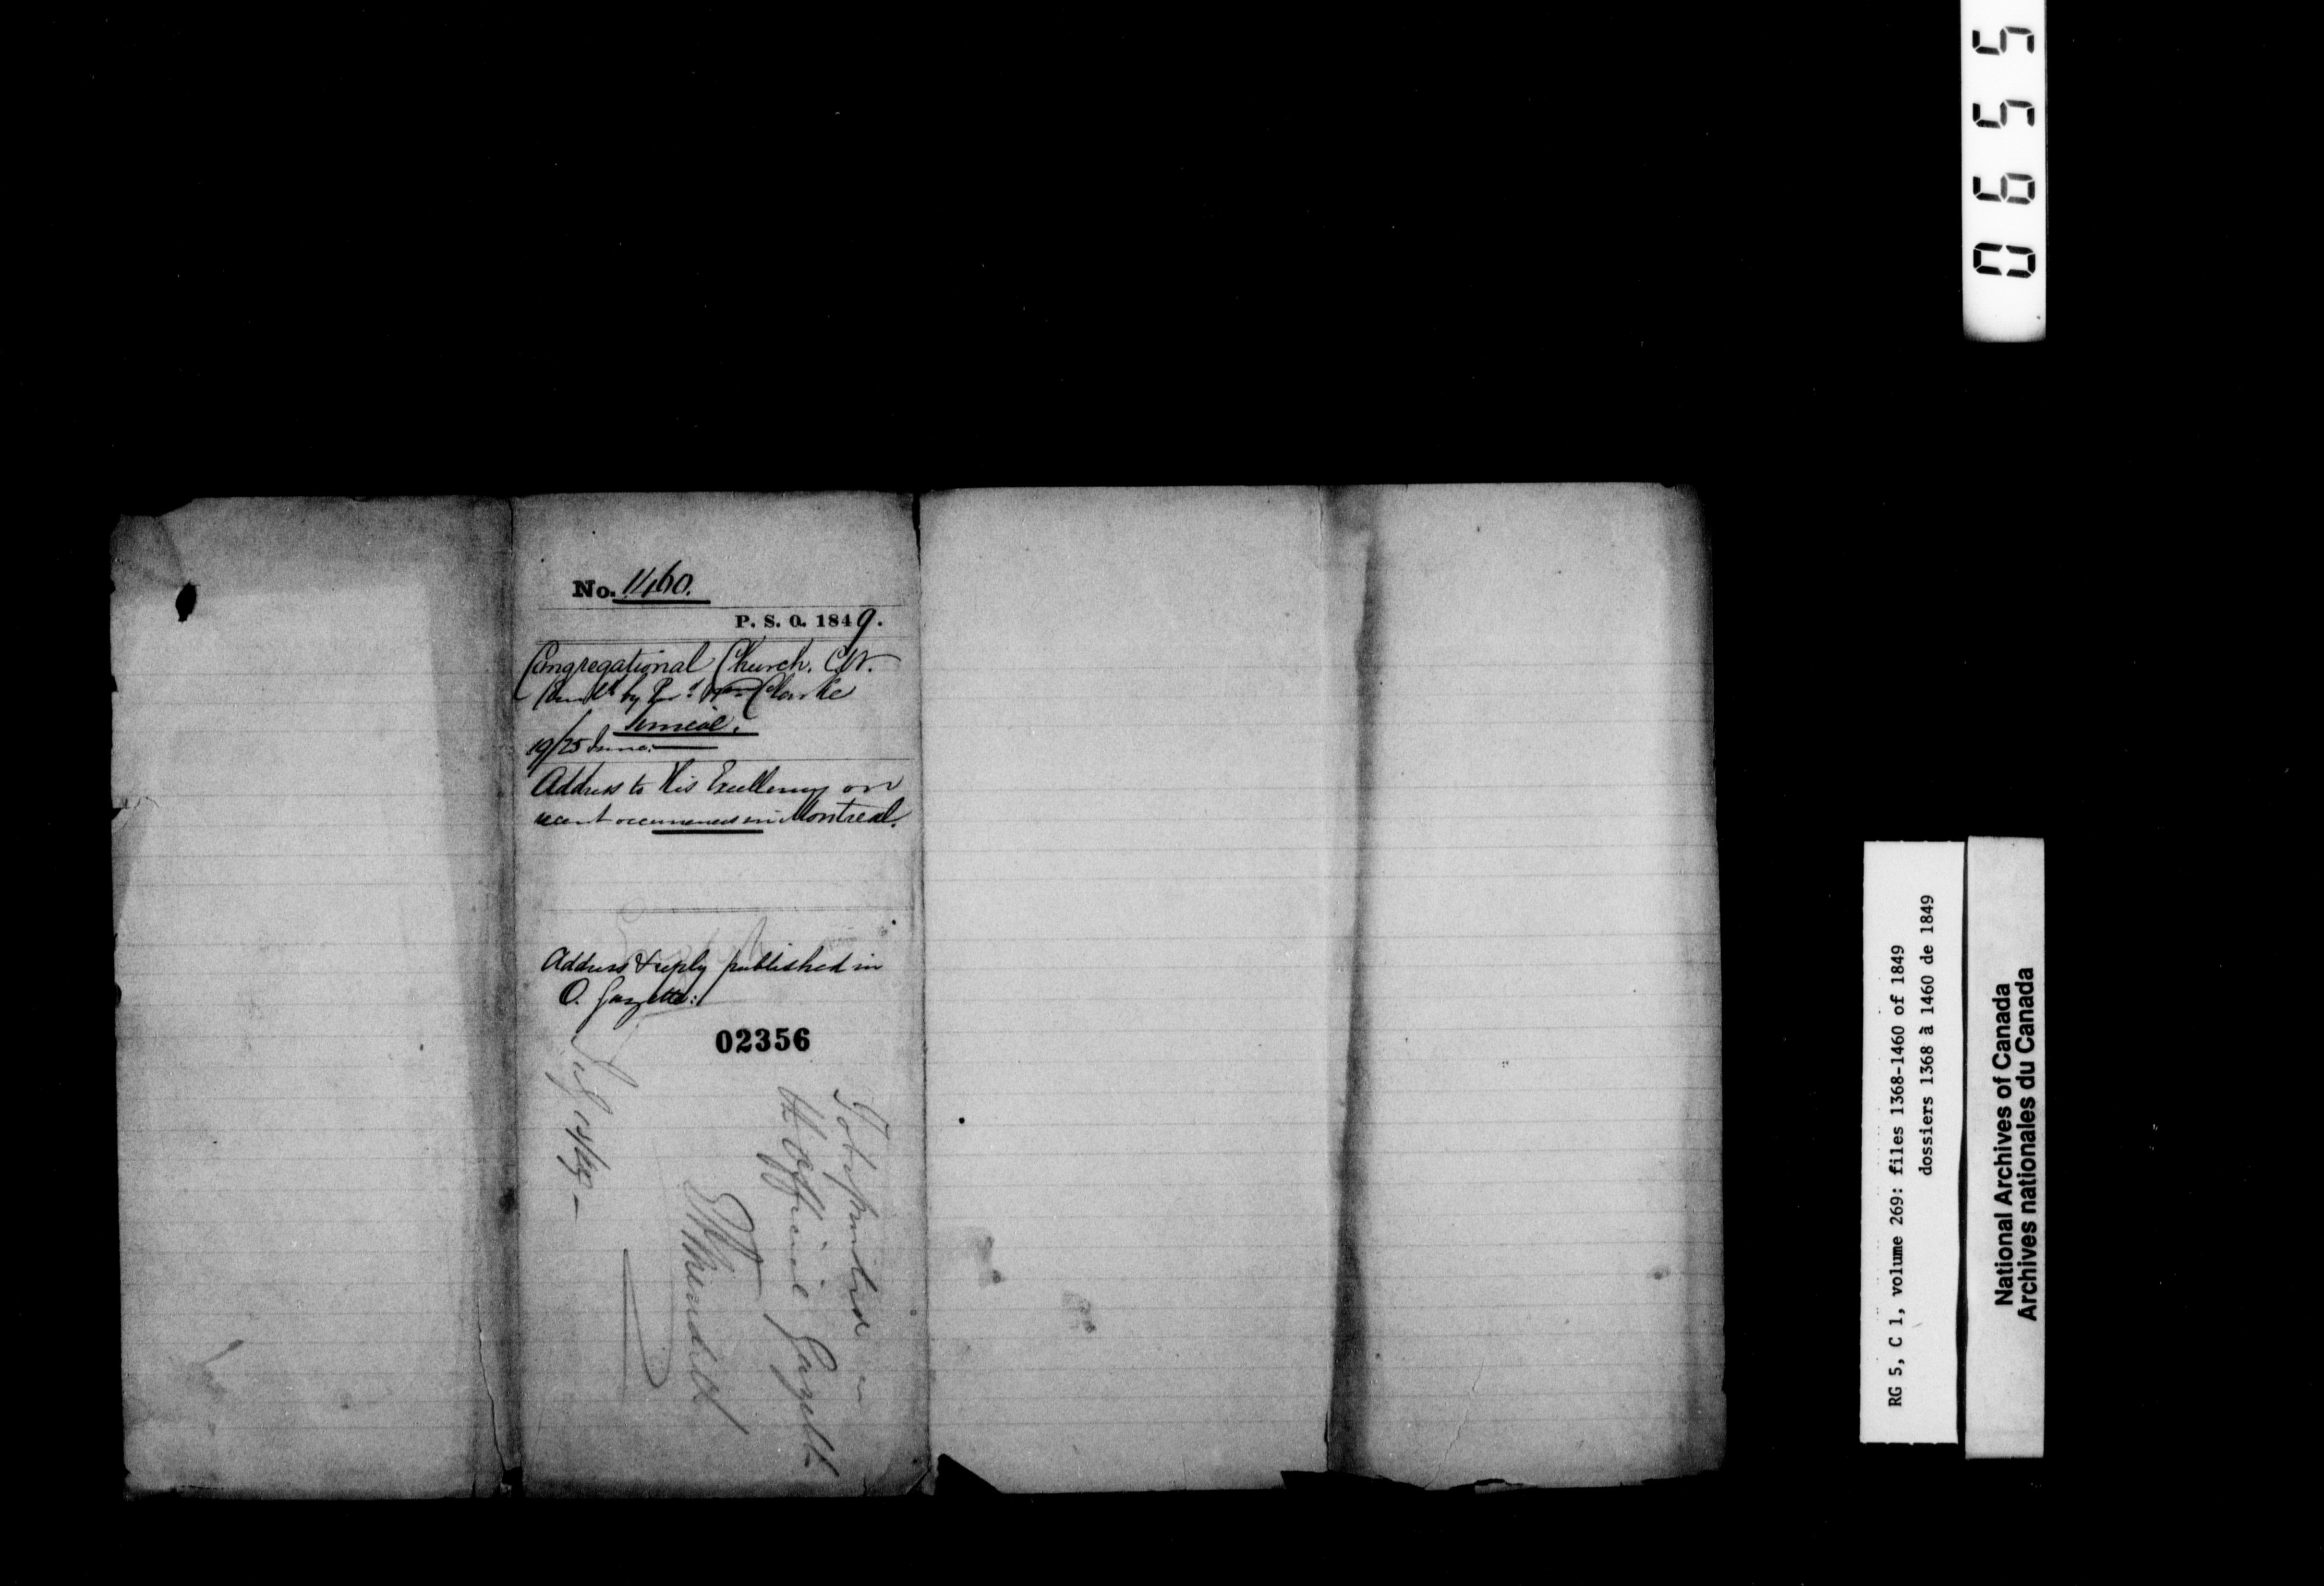 No. 1460.
P. S. O. 1849.
Congregational Church. C.W.
by Clarke
Simcoe.
19/25 June.
Address to His Excellency on
recent occurrences in Montreal.
Address & reply published in
O. Gazette:
02356
To be printed in
the Official Gazette
0655
RG 5, C 1, volume 269: files 1368-1460 of 1849
dossiers 1368 à 1460 de 1849
National Archives of Canada
Archives nationales du Canada